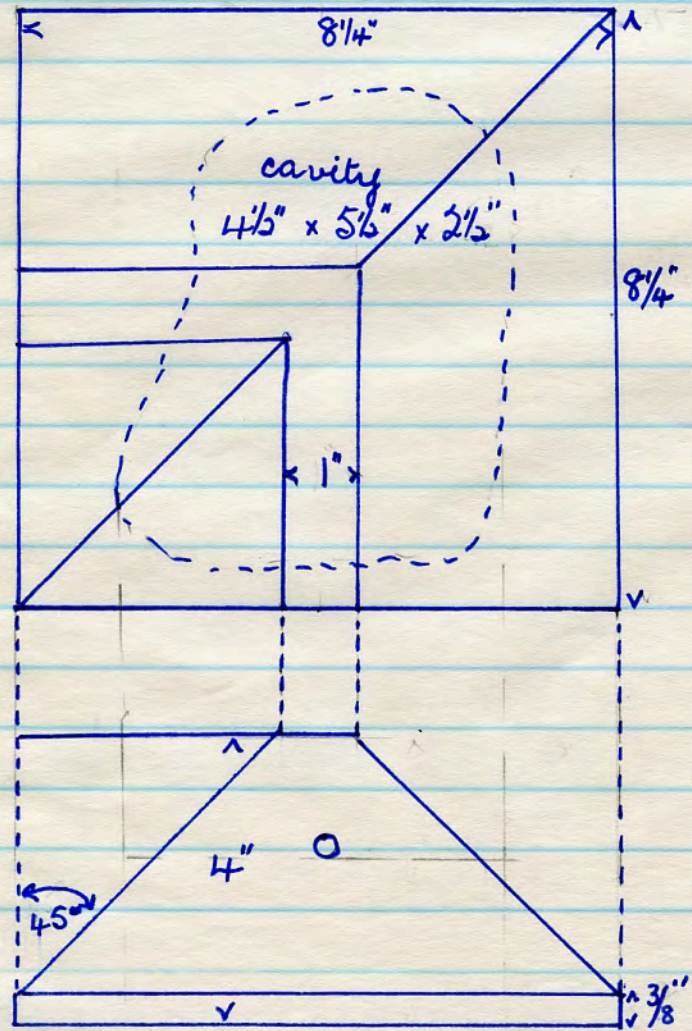 8 1/4"
cavity
4 1/2" x 5 1/2" x 2 1/2"
8 1/4"
1"
4"
45°
3/8"